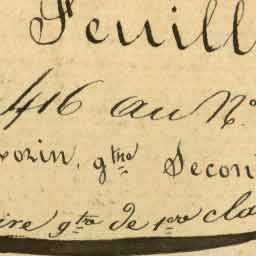 Feuill
416 au N°
vozin, gtne Second
ire gtre de 1ere cla